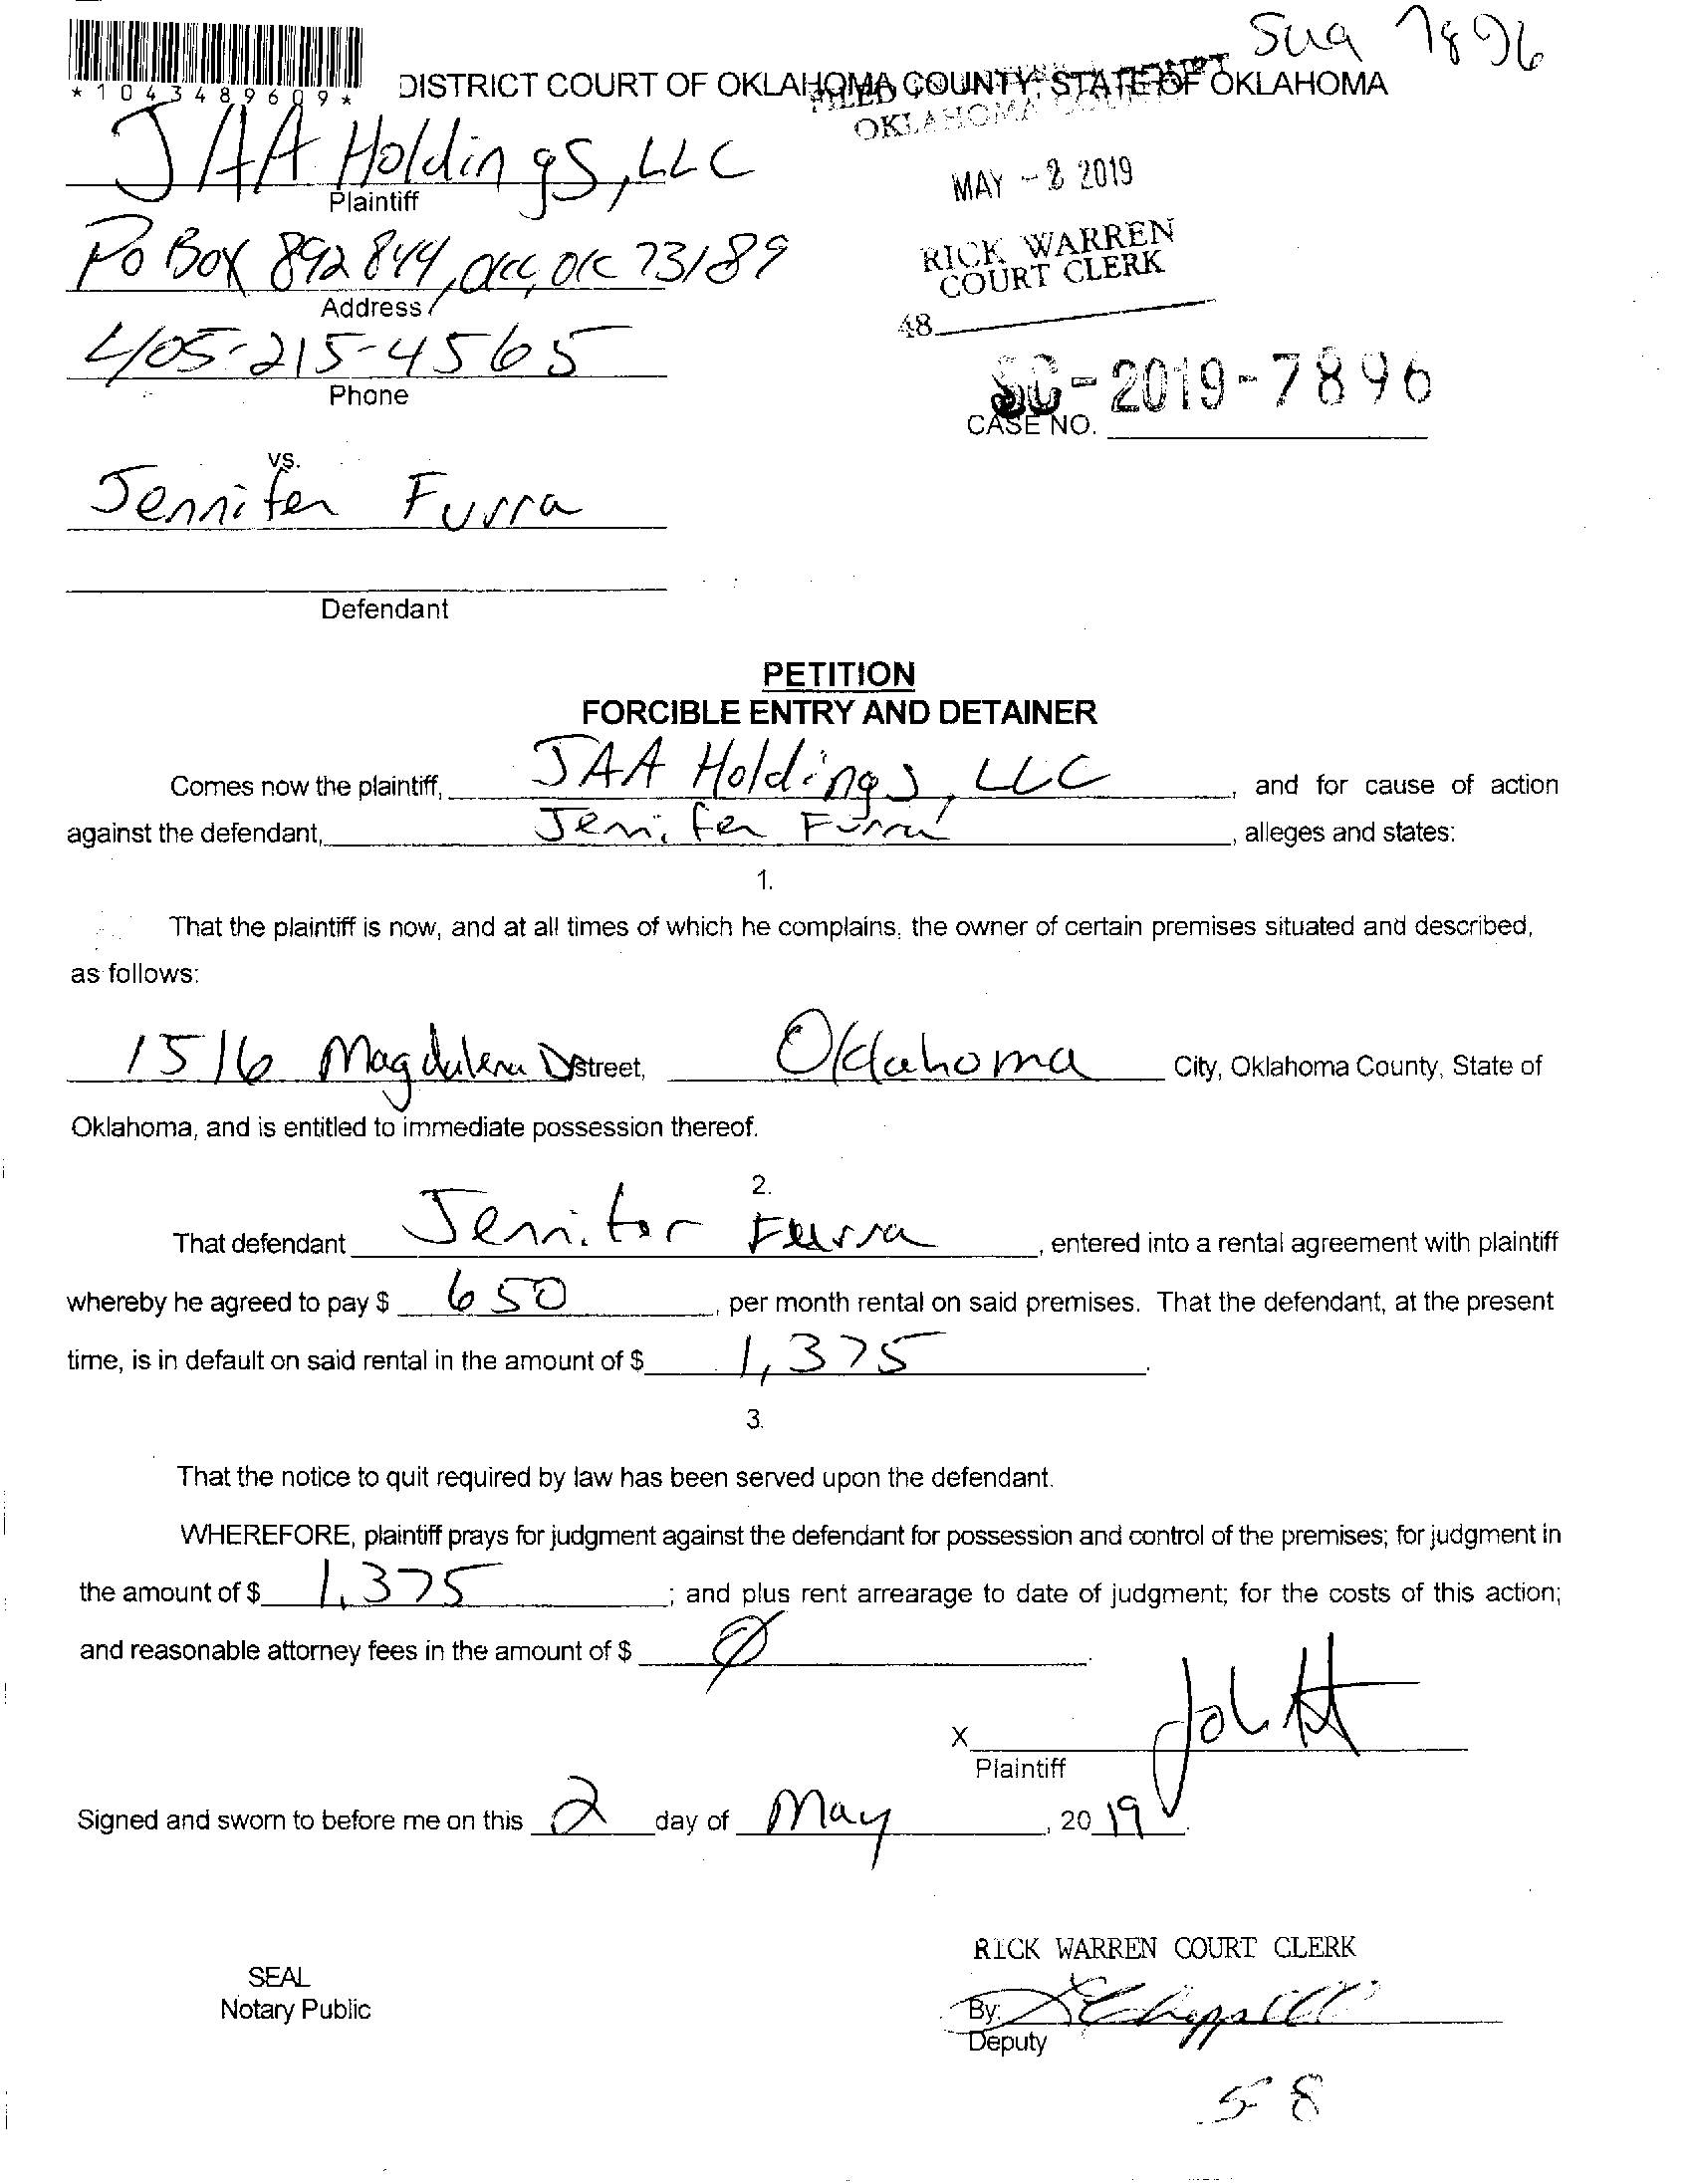 Sug 7896
*1043489609*
DISTRICT COURT OF OKLAHOMA COUNTY, STATE OF OKLAHOMA
FILED
OKLAHOMA
JAA Holdings, LLC
Plaintiff
MAY - 2 2019
PO Box 892844, OKC, OK 73189
Address
RICK WARREN
COURT CLERK
48
405-215-4565
Phone
SC-2019-7896
CASE NO.
vs.
Jennifer Furra
Defendant
PETITION
FORCIBLE ENTRY AND DETAINER
Comes now the plaintiff, JAA Holdings, LLC, and for cause of action
against the defendant, Jennifer Furra, alleges and states:
1.
That the plaintiff is now, and at all times of which he complains, the owner of certain premises situated and described,
as follows:
1516 Magdalena Dr street, Oklahoma City, Oklahoma County, State of
Oklahoma, and is entitled to immediate possession thereof.
2.
That defendant Jennifer Furra, entered into a rental agreement with plaintiff
whereby he agreed to pay $ 650, per month rental on said premises. That the defendant, at the present
time, is in default on said rental in the amount of $ 1,375.
3.
That the notice to quit required by law has been served upon the defendant.
WHEREFORE, plaintiff prays for judgment against the defendant for possession and control of the premises; for judgment in
the amount of $ 1,375; and plus rent arrearage to date of judgment; for the costs of this action;
and reasonable attorney fees in the amount of $ Ø.
X
Plaintiff
Signed and sworn to before me on this 2 day of May, 2019.
RICK WARREN COURT CLERK
SEAL
Notary Public
By:
Deputy
58